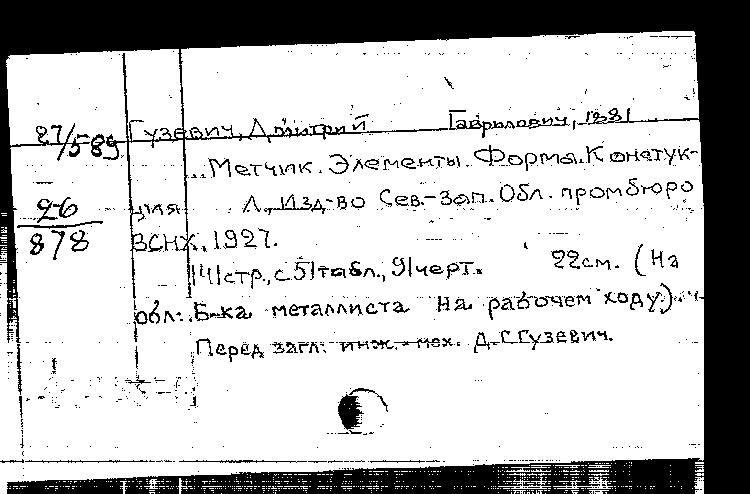 27/589 Гузевич, Дмитрий Гаврилович, 1881
...Метчик. Элементы. Форма. Конструк-
26/878 ция Л., Изд-во Сев.-Зап. Обл. промбюро
ВСНХ, 1927.
|4|стр., с 5|табл., 9|черт. 22см. (На
обл.: Б-ка металлиста На рабочем ходу.)
Перед загл.: инж.-мех. Д. Г. Гузевич.